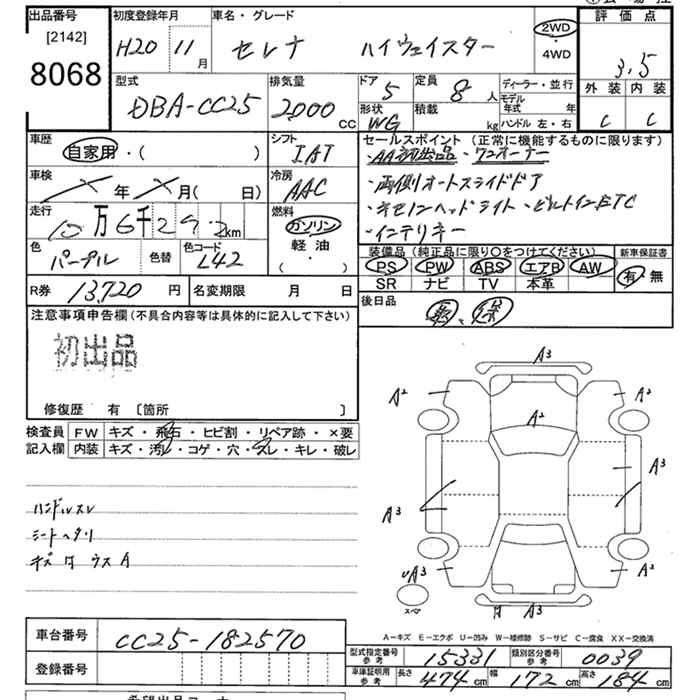 出品番号 初度登録年月 車名・グレード 評価点
[2142] H20 11月 セレナ ハイウェイスター 2WD
8068 ・ 4WD 3.5
型式 排気量 ドア 定員 ディーラー・並行 外装 内装
DBA-CC25 2000cc 5 8人 モデル年式 年 C C
形状 積載 ハンドル 左・右
WG kg
車歴 シフト セールスポイント (正常に機能するものに限ります)
自家用・( ) IAT ・AA初出品・ワンオーナー
車検 冷房 ・両側オートスライドドア
年 月( 日) AAC ・キセノンヘッドライト・ビルトインETC
走行 燃料 ・インテリキー
10万6千292km ガソリン
軽油
( ・ )
色 色替 色コード 装備品(純正品に限り○をつけてください) 新車保証書
パープル L42 PS PW ABS エアB AW 有・無
SR ナビ TV 本革
R券 13,720円 名変期限 月 日 後日品
取、保
注意事項申告欄(不具合内容等は具体的に記入して下さい)
初出品
修復歴 有 〔箇所 〕
検査員 FW キズ・飛石・ヒビ割・リペア跡・×要
記入欄 内装 キズ・汚レ・コゲ・穴・スレ・キレ・破レ
ハンドルスレ
シートヘタリ
キズ 内 ウス A
A3
A2 A3
A2
A3
A3
UA3 A2
スペア
A3
A-キズ E-エクボ U-凹み W-補修跡 S-サビ C-腐食 XX-交換済
車台番号 CC25-182570
登録番号
型式指定番号 参考 15331 類別区分番号 参考 0039
車庫証明用 参考 長さ 474cm 幅 172cm 高さ 184cm